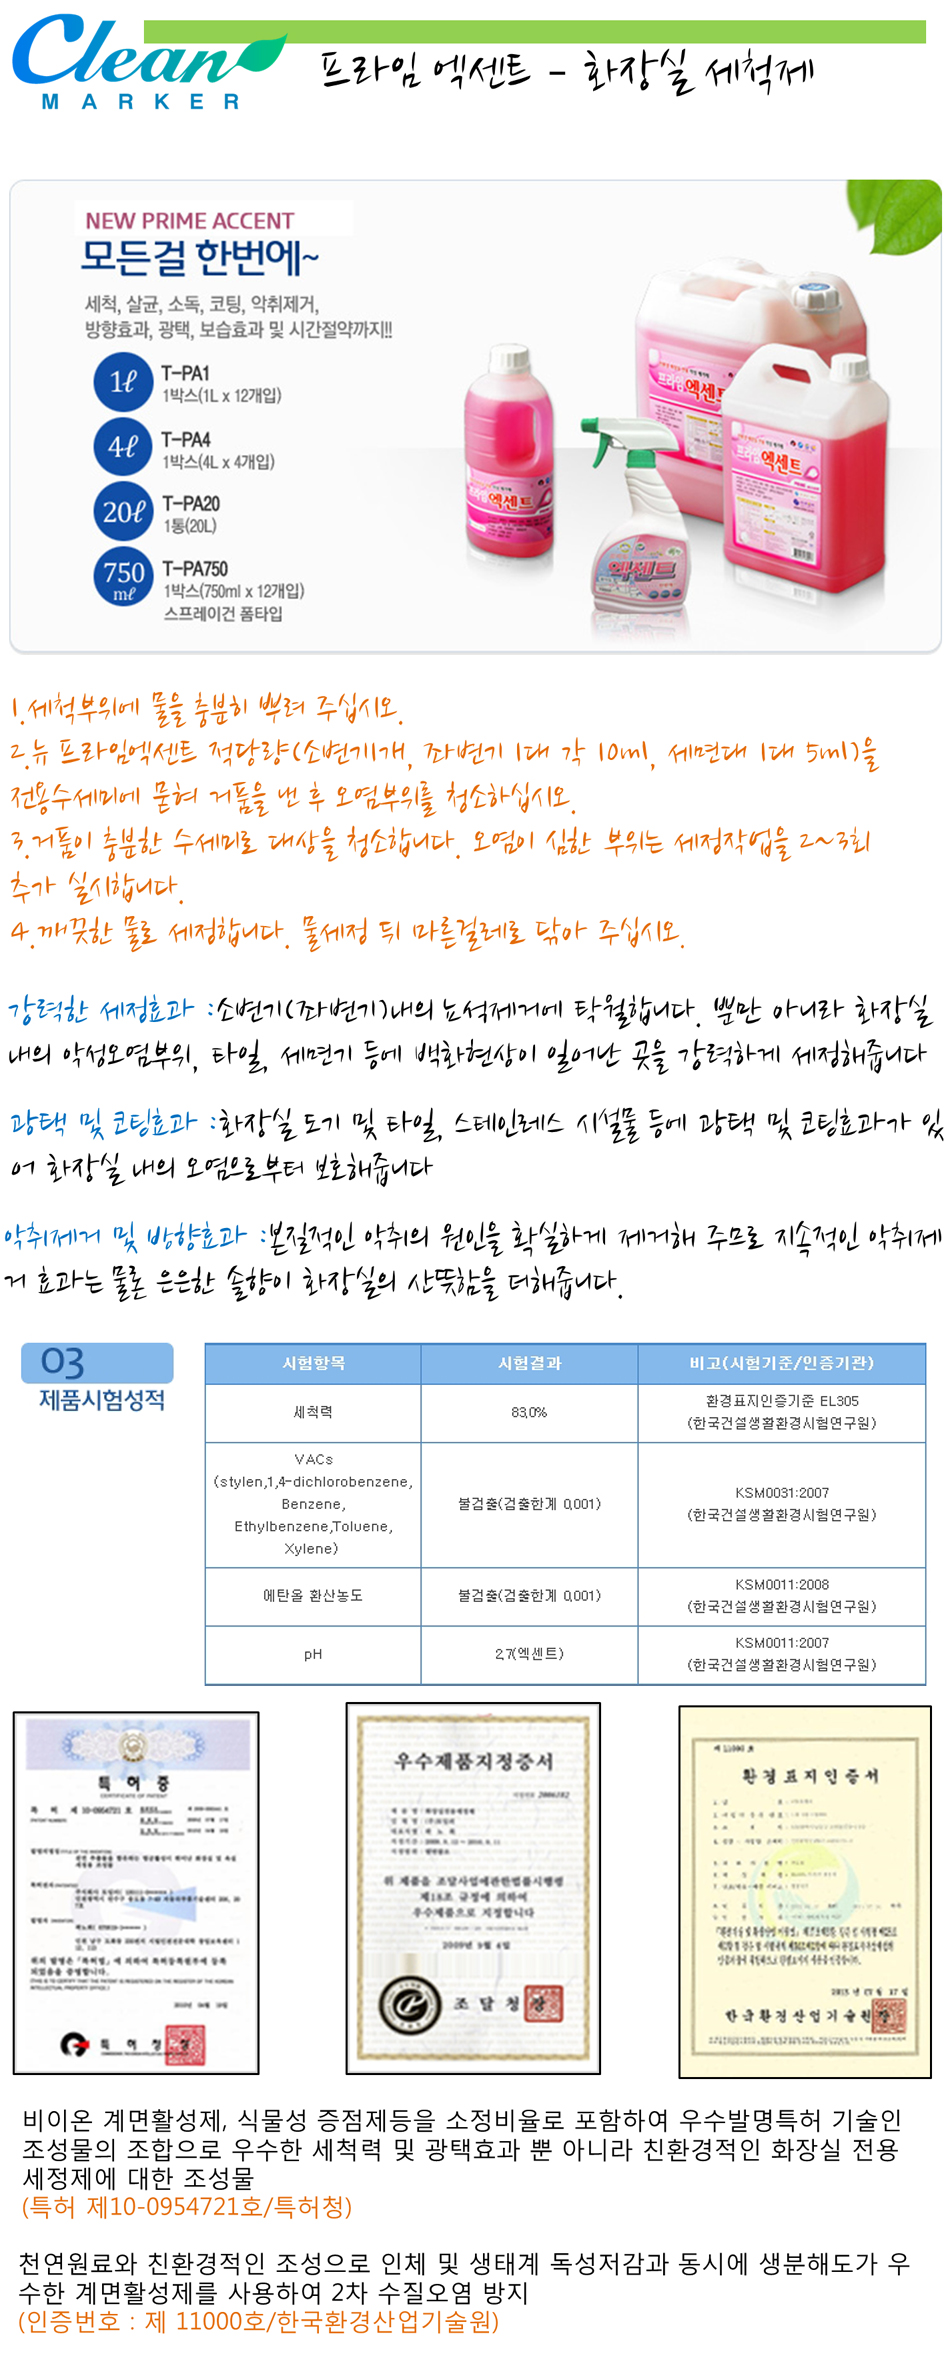 Clean
MARKER
프라임 엑센트 - 화장실 세척제
NEW PRIME ACCENT
모든걸 한번에~
세척, 살균, 소독, 코팅, 악취제거,
방향효과, 광택, 보습효과 및 시간절약까지!!
1ℓ T-PA1
1박스(1L x 12개입)
4ℓ T-PA4
1박스(4L x 4개입)
20ℓ T-PA20
1통(20L)
750mℓ T-PA750
1박스(750ml x 12개입)
스프레이건 폼타입
프라임 엑센트
프라임 엑센트
프라임 엑센트
엑센트
1.세척부위에 물을 충분히 뿌려 주십시오.
2.뉴 프라임엑센트 적당량(소변기1개, 좌변기 1대 각 10ml, 세면대 1대 5ml)을
전용수세미에 묻혀 거품을 낸 후 오염부위를 청소하십시오.
3.거품이 충분한 수세미로 대상을 청소합니다. 오염이 심한 부위는 세정작업을 2~3회
추가 실시합니다.
4.깨끗한 물로 세정합니다. 물세정 뒤 마른걸레로 닦아 주십시오.
강력한 세정효과 :소변기(좌변기)내의 뇨석제거에 탁월합니다. 뿐만 아니라 화장실
내의 악성오염부위, 타일, 세면기 등에 백화현상이 일어난 곳을 강력하게 세정해줍니다
광택 및 코팅효과 :화장실 도기 및 타일, 스테인레스 시설물 등에 광택 및 코팅효과가 있
어 화장실 내의 오염으로부터 보호해줍니다
악취제거 및 방향효과 :본질적인 악취의 원인을 확실하게 제거해 주므로 지속적인 악취제
거 효과는 물론 은은한 솔향이 화장실의 산뜻함을 더해줍니다.
03
제품시험성적
시험항목 시험결과 비고(시험기준/인증기관)
세척력 83.0% 환경표지인증기준 EL305
(한국건설생활환경시험연구원)
VACs
(stylen,1,4-dichlorobenzene,
Benzene,
Ethylbenzene,Toluene,
Xylene)
불검출(검출한계 0.001)
KSM0031:2007
(한국건설생활환경시험연구원)
에탄올 환산농도 불검출(검출한계 0.001) KSM0011:2008
(한국건설생활환경시험연구원)
pH 2.7(엑센트) KSM0011:2007
(한국건설생활환경시험연구원)
특 허 증
CERTIFICATE OF PATENT
특 허 제 10-0954721 호
특 허 청
우수제품지정증서
위 제품을 조달사업에관한법률시행령
제18조 규정에 의하여
우수제품으로 지정합니다
2009년 9월 4일
조 달 청 장
제 11000 호
환경표지인증서
한국환경산업기술원장
비이온 계면활성제, 식물성 증점제등을 소정비율로 포함하여 우수발명특허 기술인
조성물의 조합으로 우수한 세척력 및 광택효과 뿐 아니라 친환경적인 화장실 전용
세정제에 대한 조성물
(특허 제10-0954721호/특허청)
천연원료와 친환경적인 조성으로 인체 및 생태계 독성저감과 동시에 생분해도가 우
수한 계면활성제를 사용하여 2차 수질오염 방지
(인증번호 : 제 11000호/한국환경산업기술원)